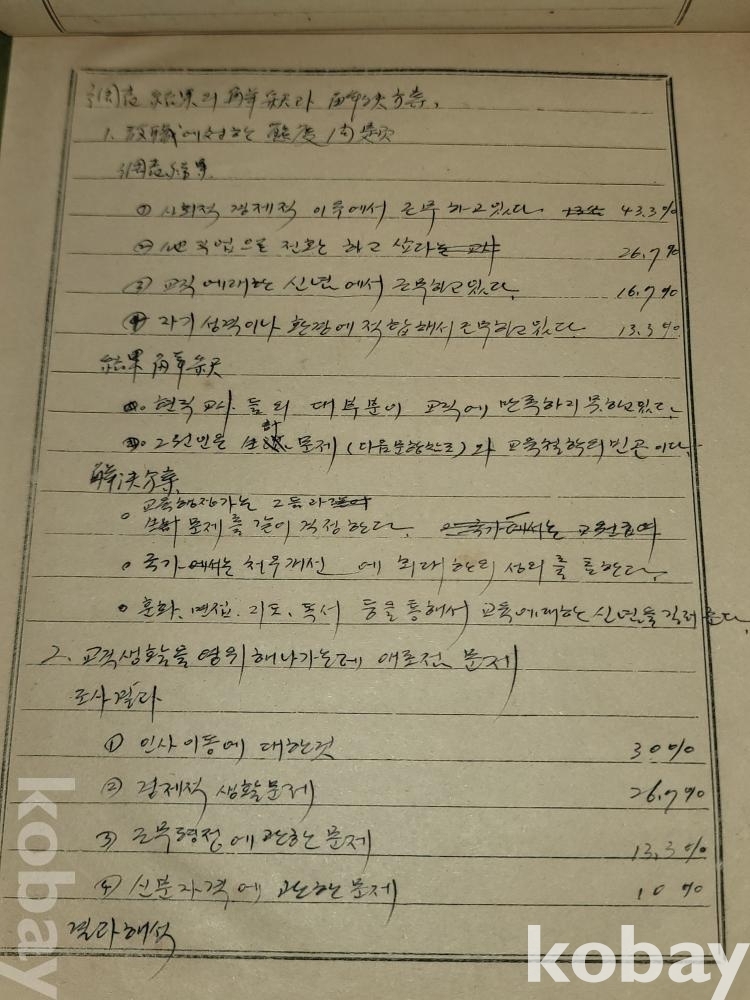 調査 結果의 解釈과 解決方案.
1. 敎職에 대한 態度 問題
調査結果
① 사회적 경제적 이유에서 근무하고 있다. 43.3%
② 他 직업으로 전환 하고 싶다 26.7%
③ 교직에 대한 신념에서 근무하고 있다. 16.7%
④ 자기 성격이나 환경에 적합해서 근무하고 있다. 13.3%
結果 解釈
현직교사 들의 대부분이 교직에 만족하지 못하고 있다.
그 원인은 生計 문제 (다음문항참조)와 교육철학의 빈곤이다.
解決方案.
교육행정가는 그들과
문제를 같이 걱정한다.
국가에서는 처우개선 에 최대한의 성의를 다한다.
훈화, 면접, 지도, 독서 등을 통해서 교육에 대한 신념을 길러 준다.
2. 교직생활을 영위해나가는데 애로점 문제
조사결과
① 인사이동에 대한것 30%
② 경제적 생활문제 26.7%
③ 근무평정에 관한 문제 13.3%
④ 신분자격에 관한 문제 10%
결과해석
kobay
kobay